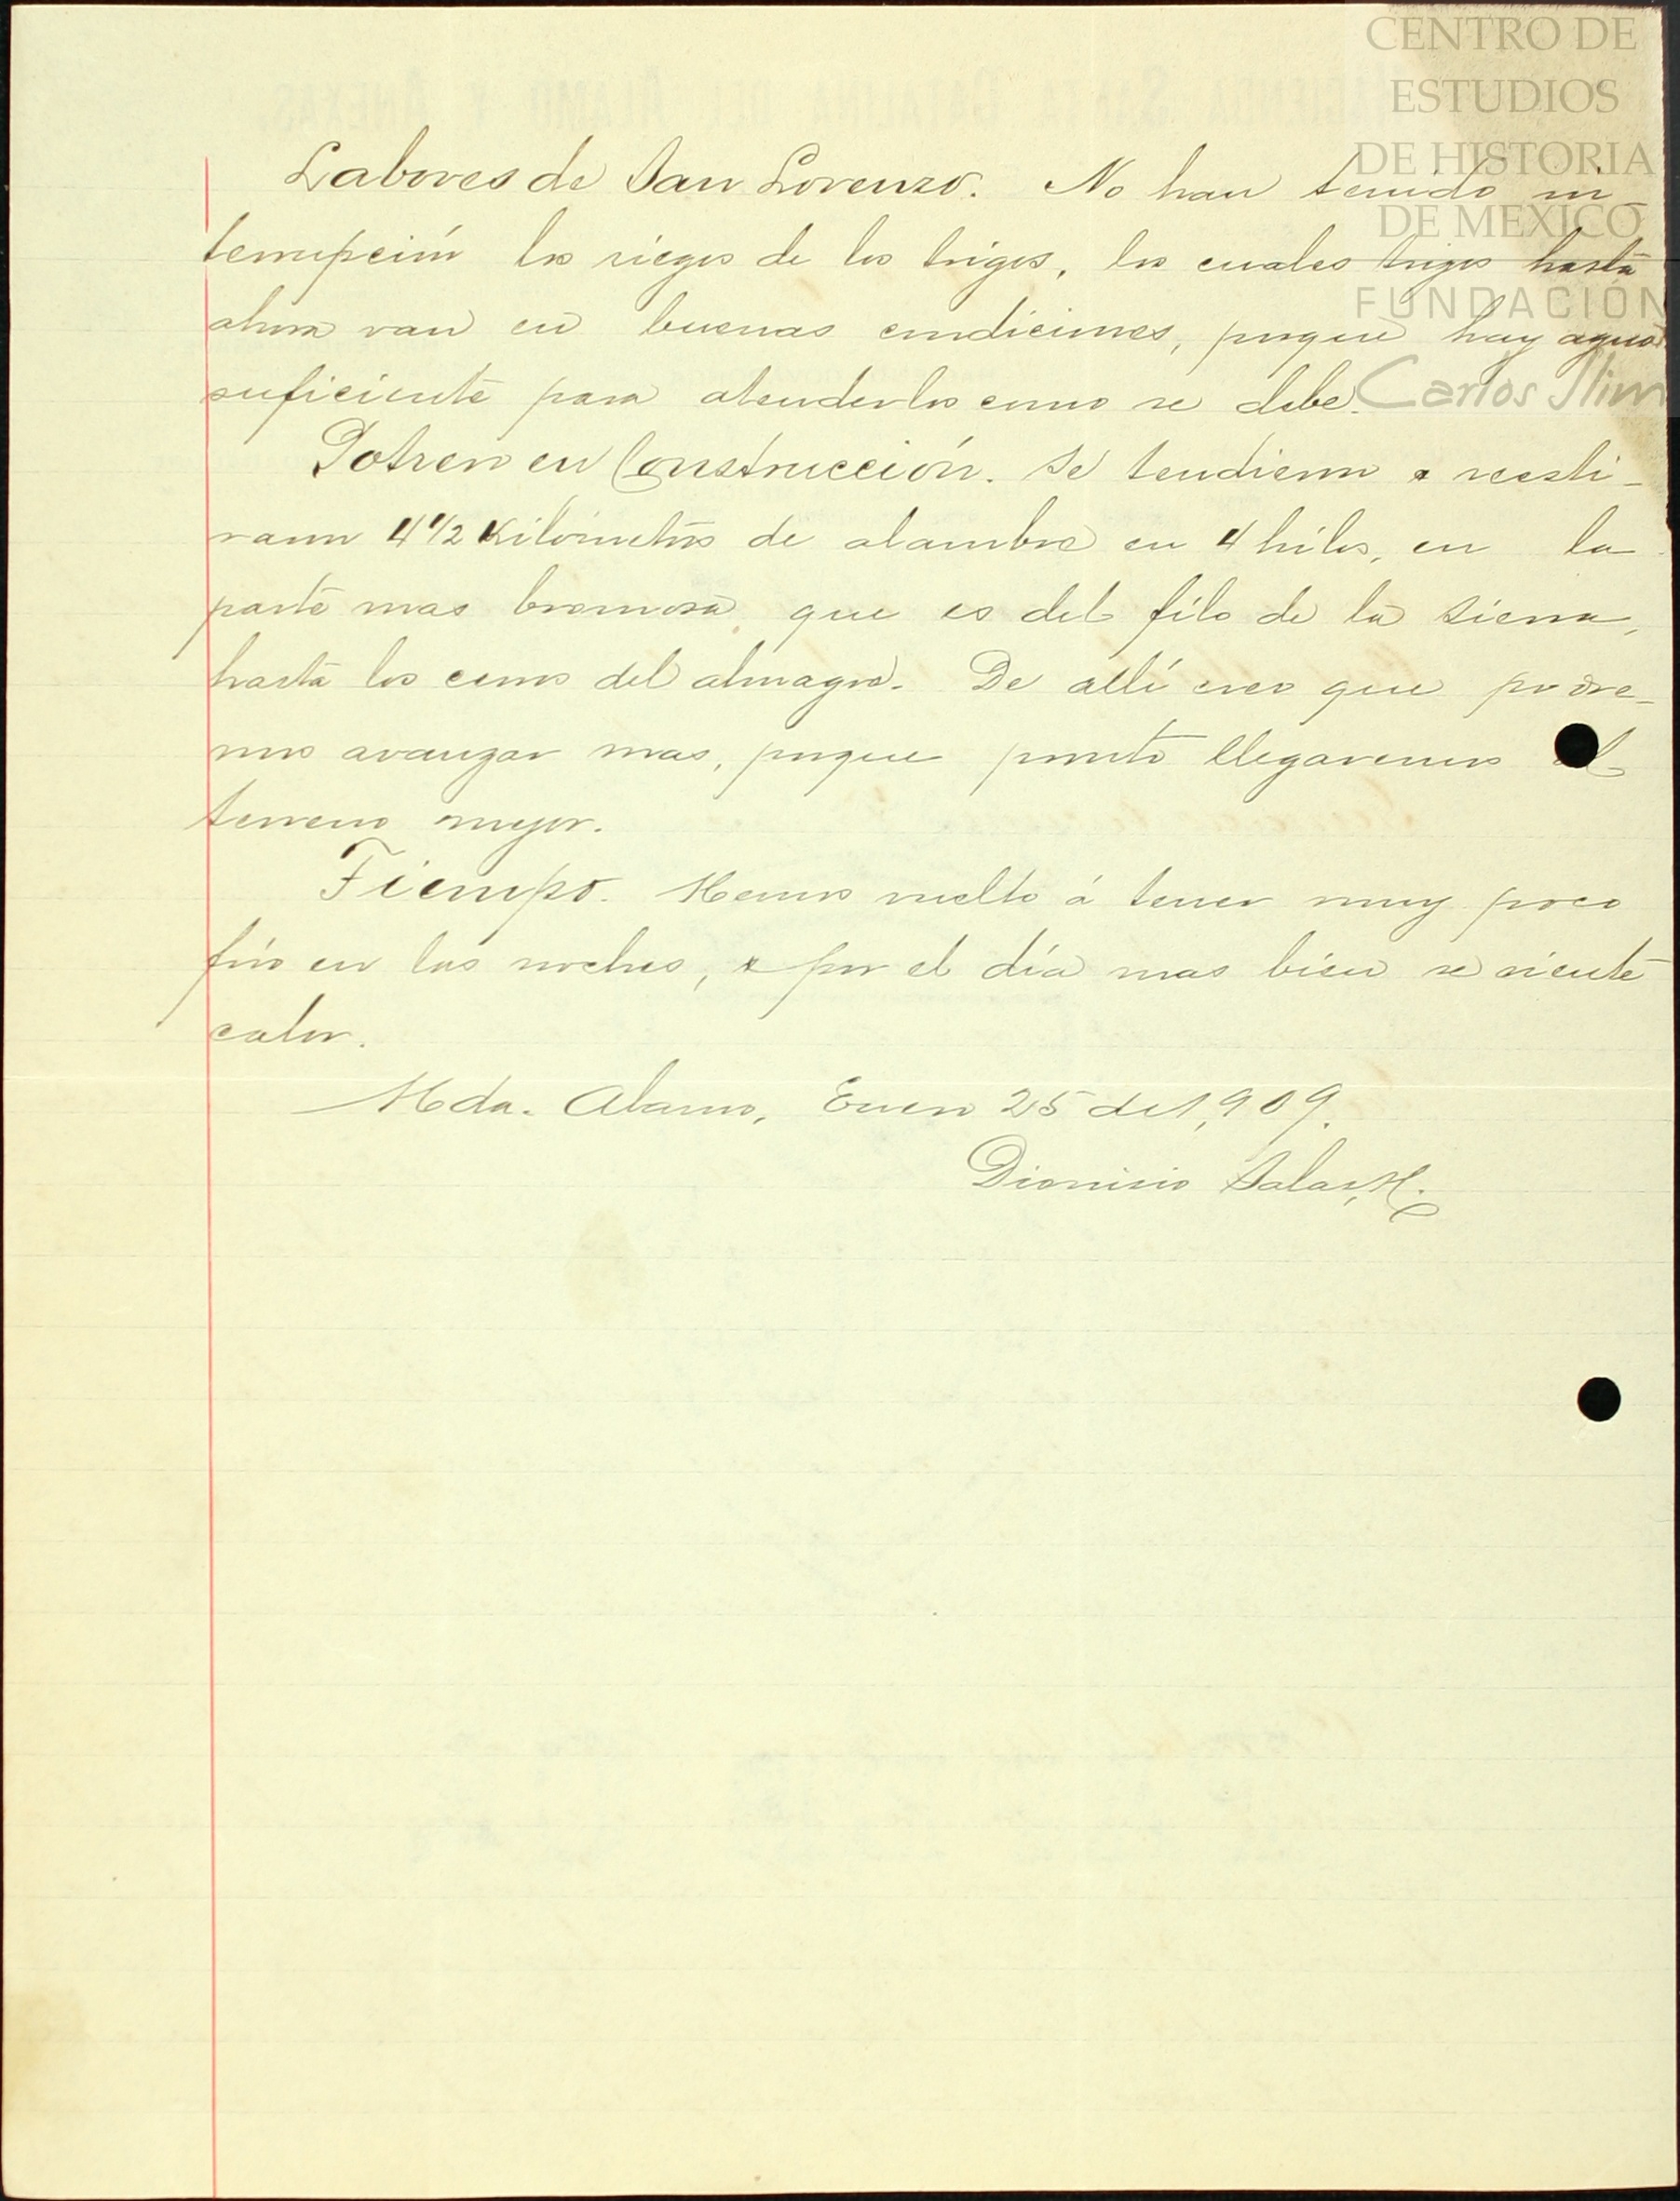 CENTRO DE
ESTUDIOS
DE HISTORIA
DE MEXICO
FUNDACIÓN
Carlos Slim
HACIENDA SANTA CATALINA DEL ALAMO Y ANEXAS
Labores de San Lorenzo. No han tenido in-
terrupción los riegos de los trigos, los cuales trigos hasta
ahora van en buenas condiciones, porque hay agua
suficiente para atenderlos como se debe.
Potrero en Construcción. Se tendieron y reesti-
raron 4 1/2 Kilómetros de alambre en 4 hilos, en la
parte mas bromosa, que es del filo de la sierra,
hasta los cerros del almagre. De allí creo que podre-
mos avanzar mas, porque pronto llegaremos al
terreno mejor.
Tiempo. Hemos vuelto á tener muy poco
frío en las noches, y por el día mas bien se siente
calor.
Hda. Alamo, Enero 25 de 1,909.
Dionisio Salas, H.